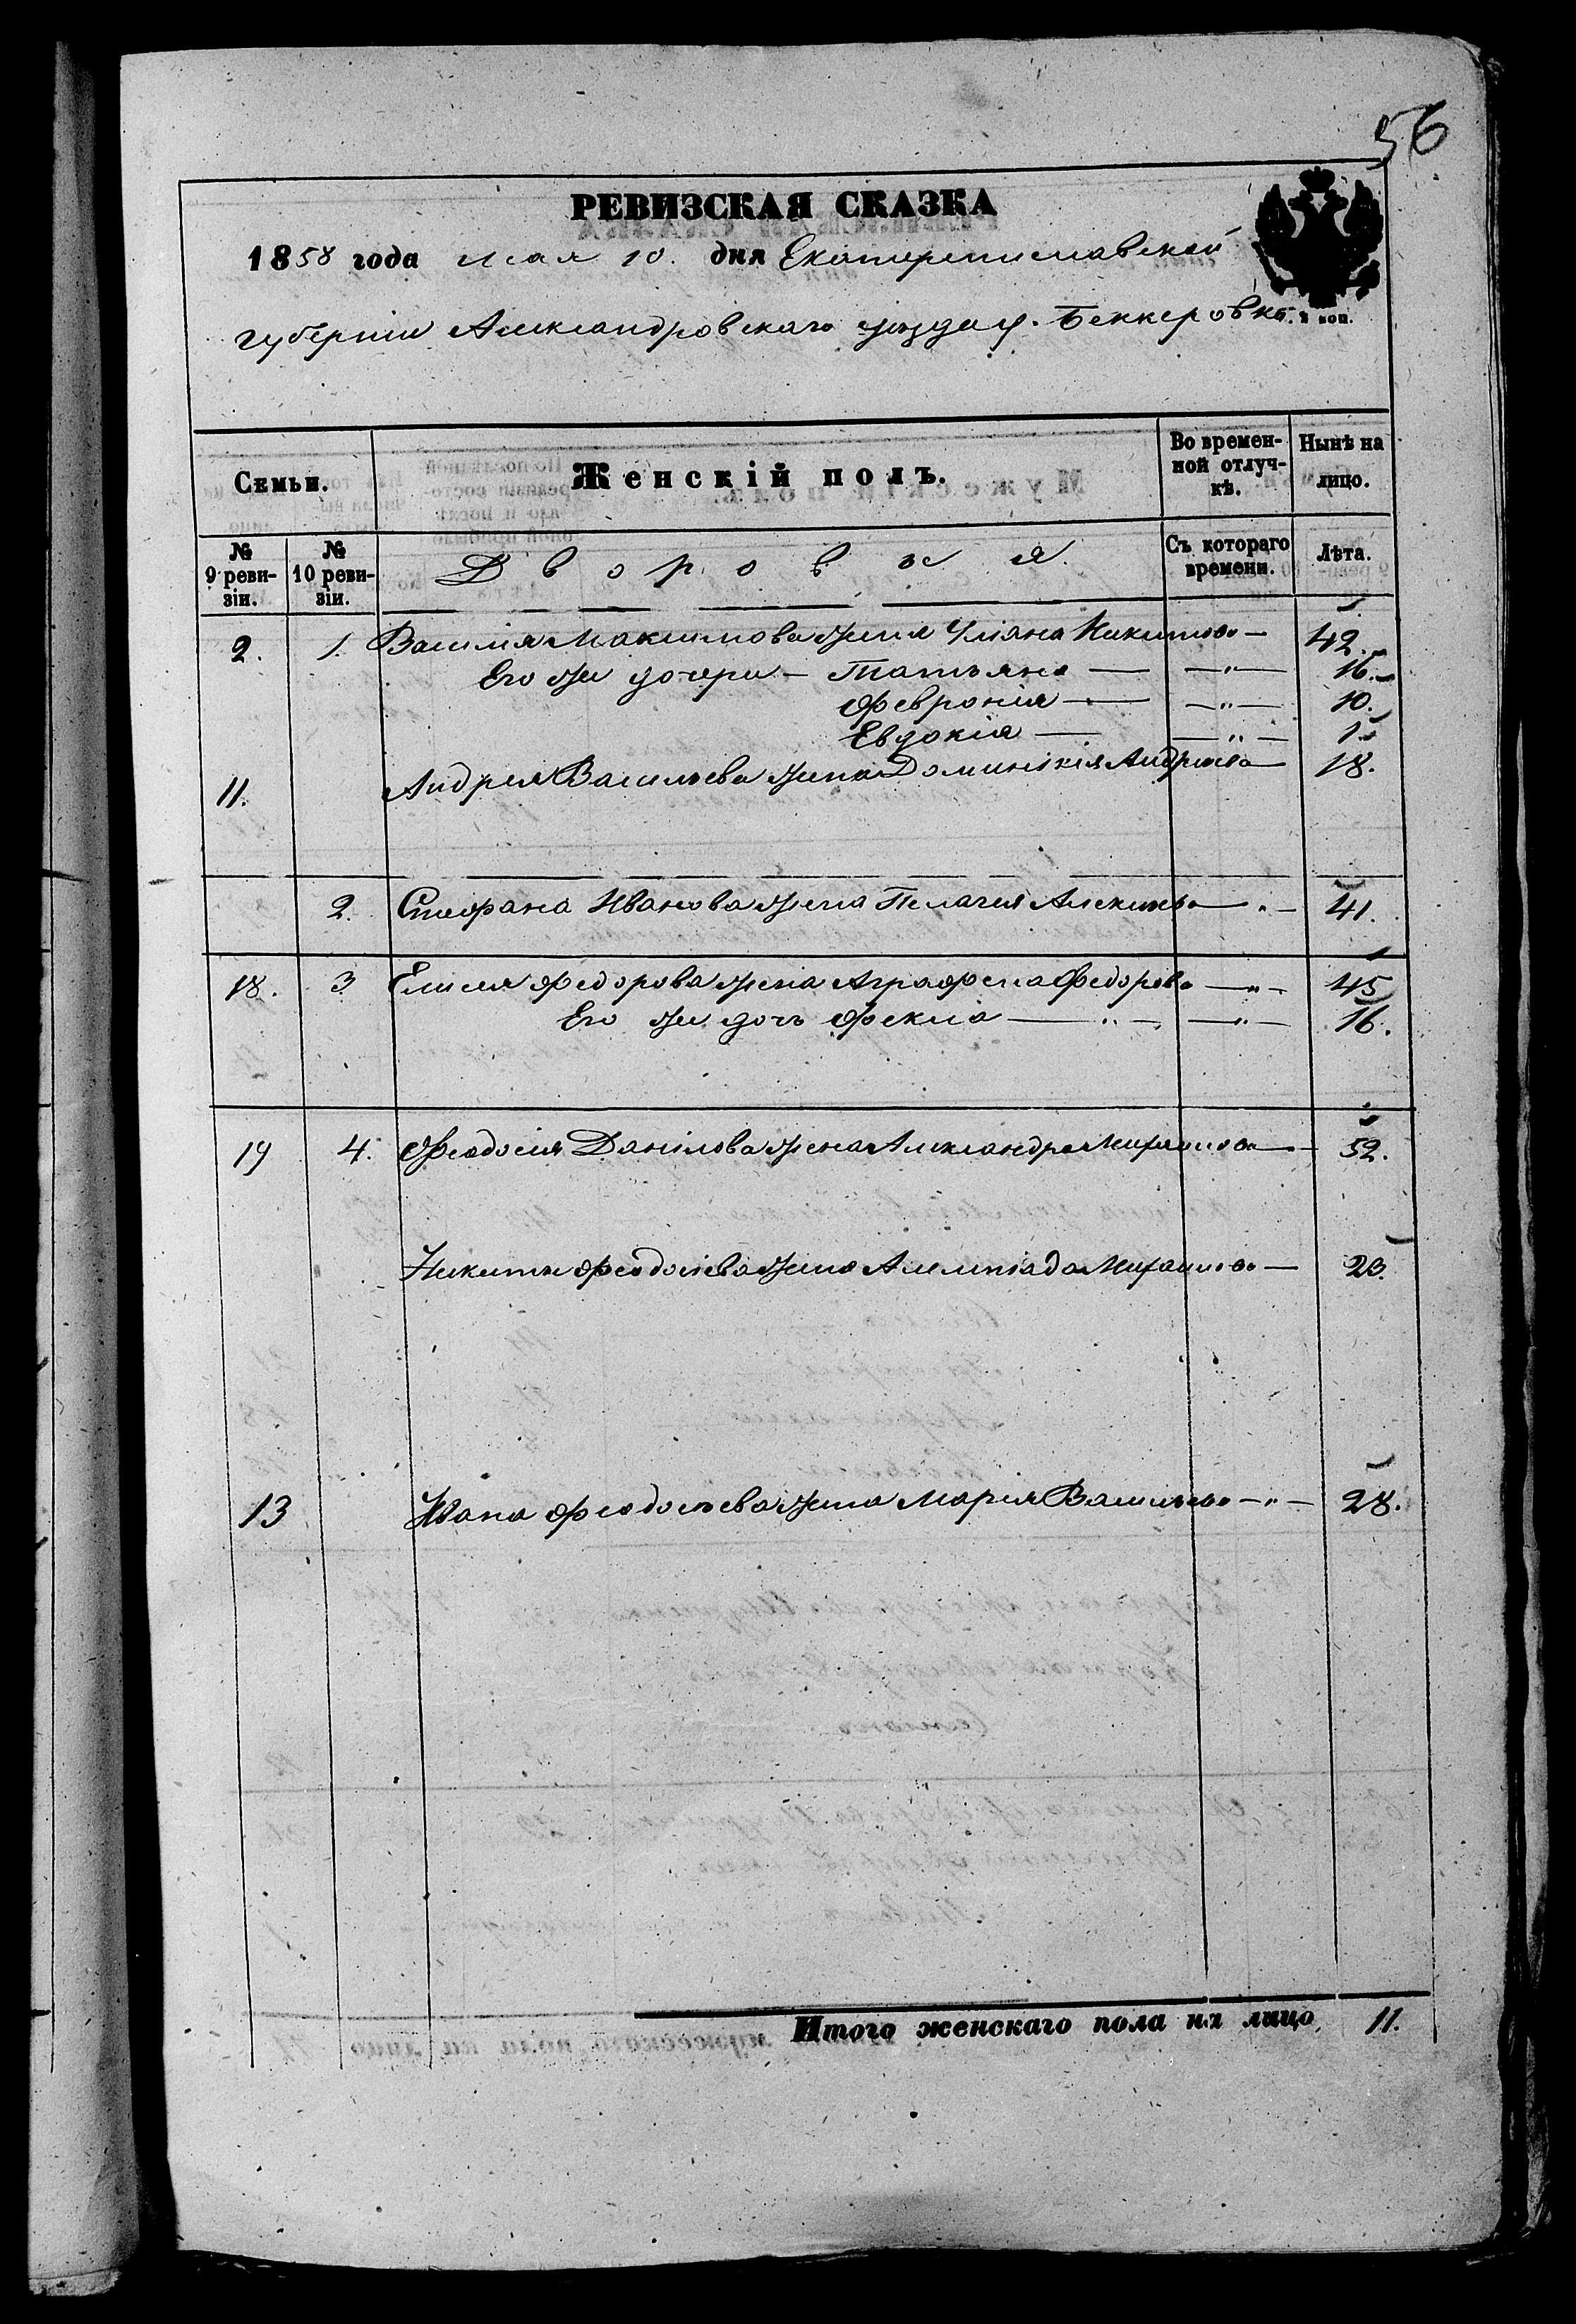 56
РЕВИЗСКАЯ СКАЗКА
1858 года мая 10. дня Екатеринославской
губерніи Александровскаго уѣзда Беккеровк
Семьи.
Женскій полъ.
Во времен-
ной отлуч-
кѣ.
Нынѣ на
лицо.
№
9 реви-
зіи.
№
10 реви-
зіи.
Дворовыя.
Съ котораго
времени.
Лѣта.
2. 1. Василія Максимова жена Уліяна Никитова — 42.
Его же дочери — Татьяна — —"— 16.
Февронія — —"— 10.
Евдокія — —"— 1.
11. Андрея Васильева жена Доминикія Андреева — 18.
2. Стефана Иванова жена Пелагея Алексеева — " — 41.
18. 3 Елисея Федорова жена Аграфена Федорова — " — 45
Его же дочь Фекла — " — —"— 16.
19 4. Феодосія Данілова жена Александра Михайлова — 52.
Никиты Феодосіева жена Алимпіада Михайлова — 23.
13 Ивана Феодосьева жена Марія Васильева — " — 28.
Итого женскаго пола на лицо 11.